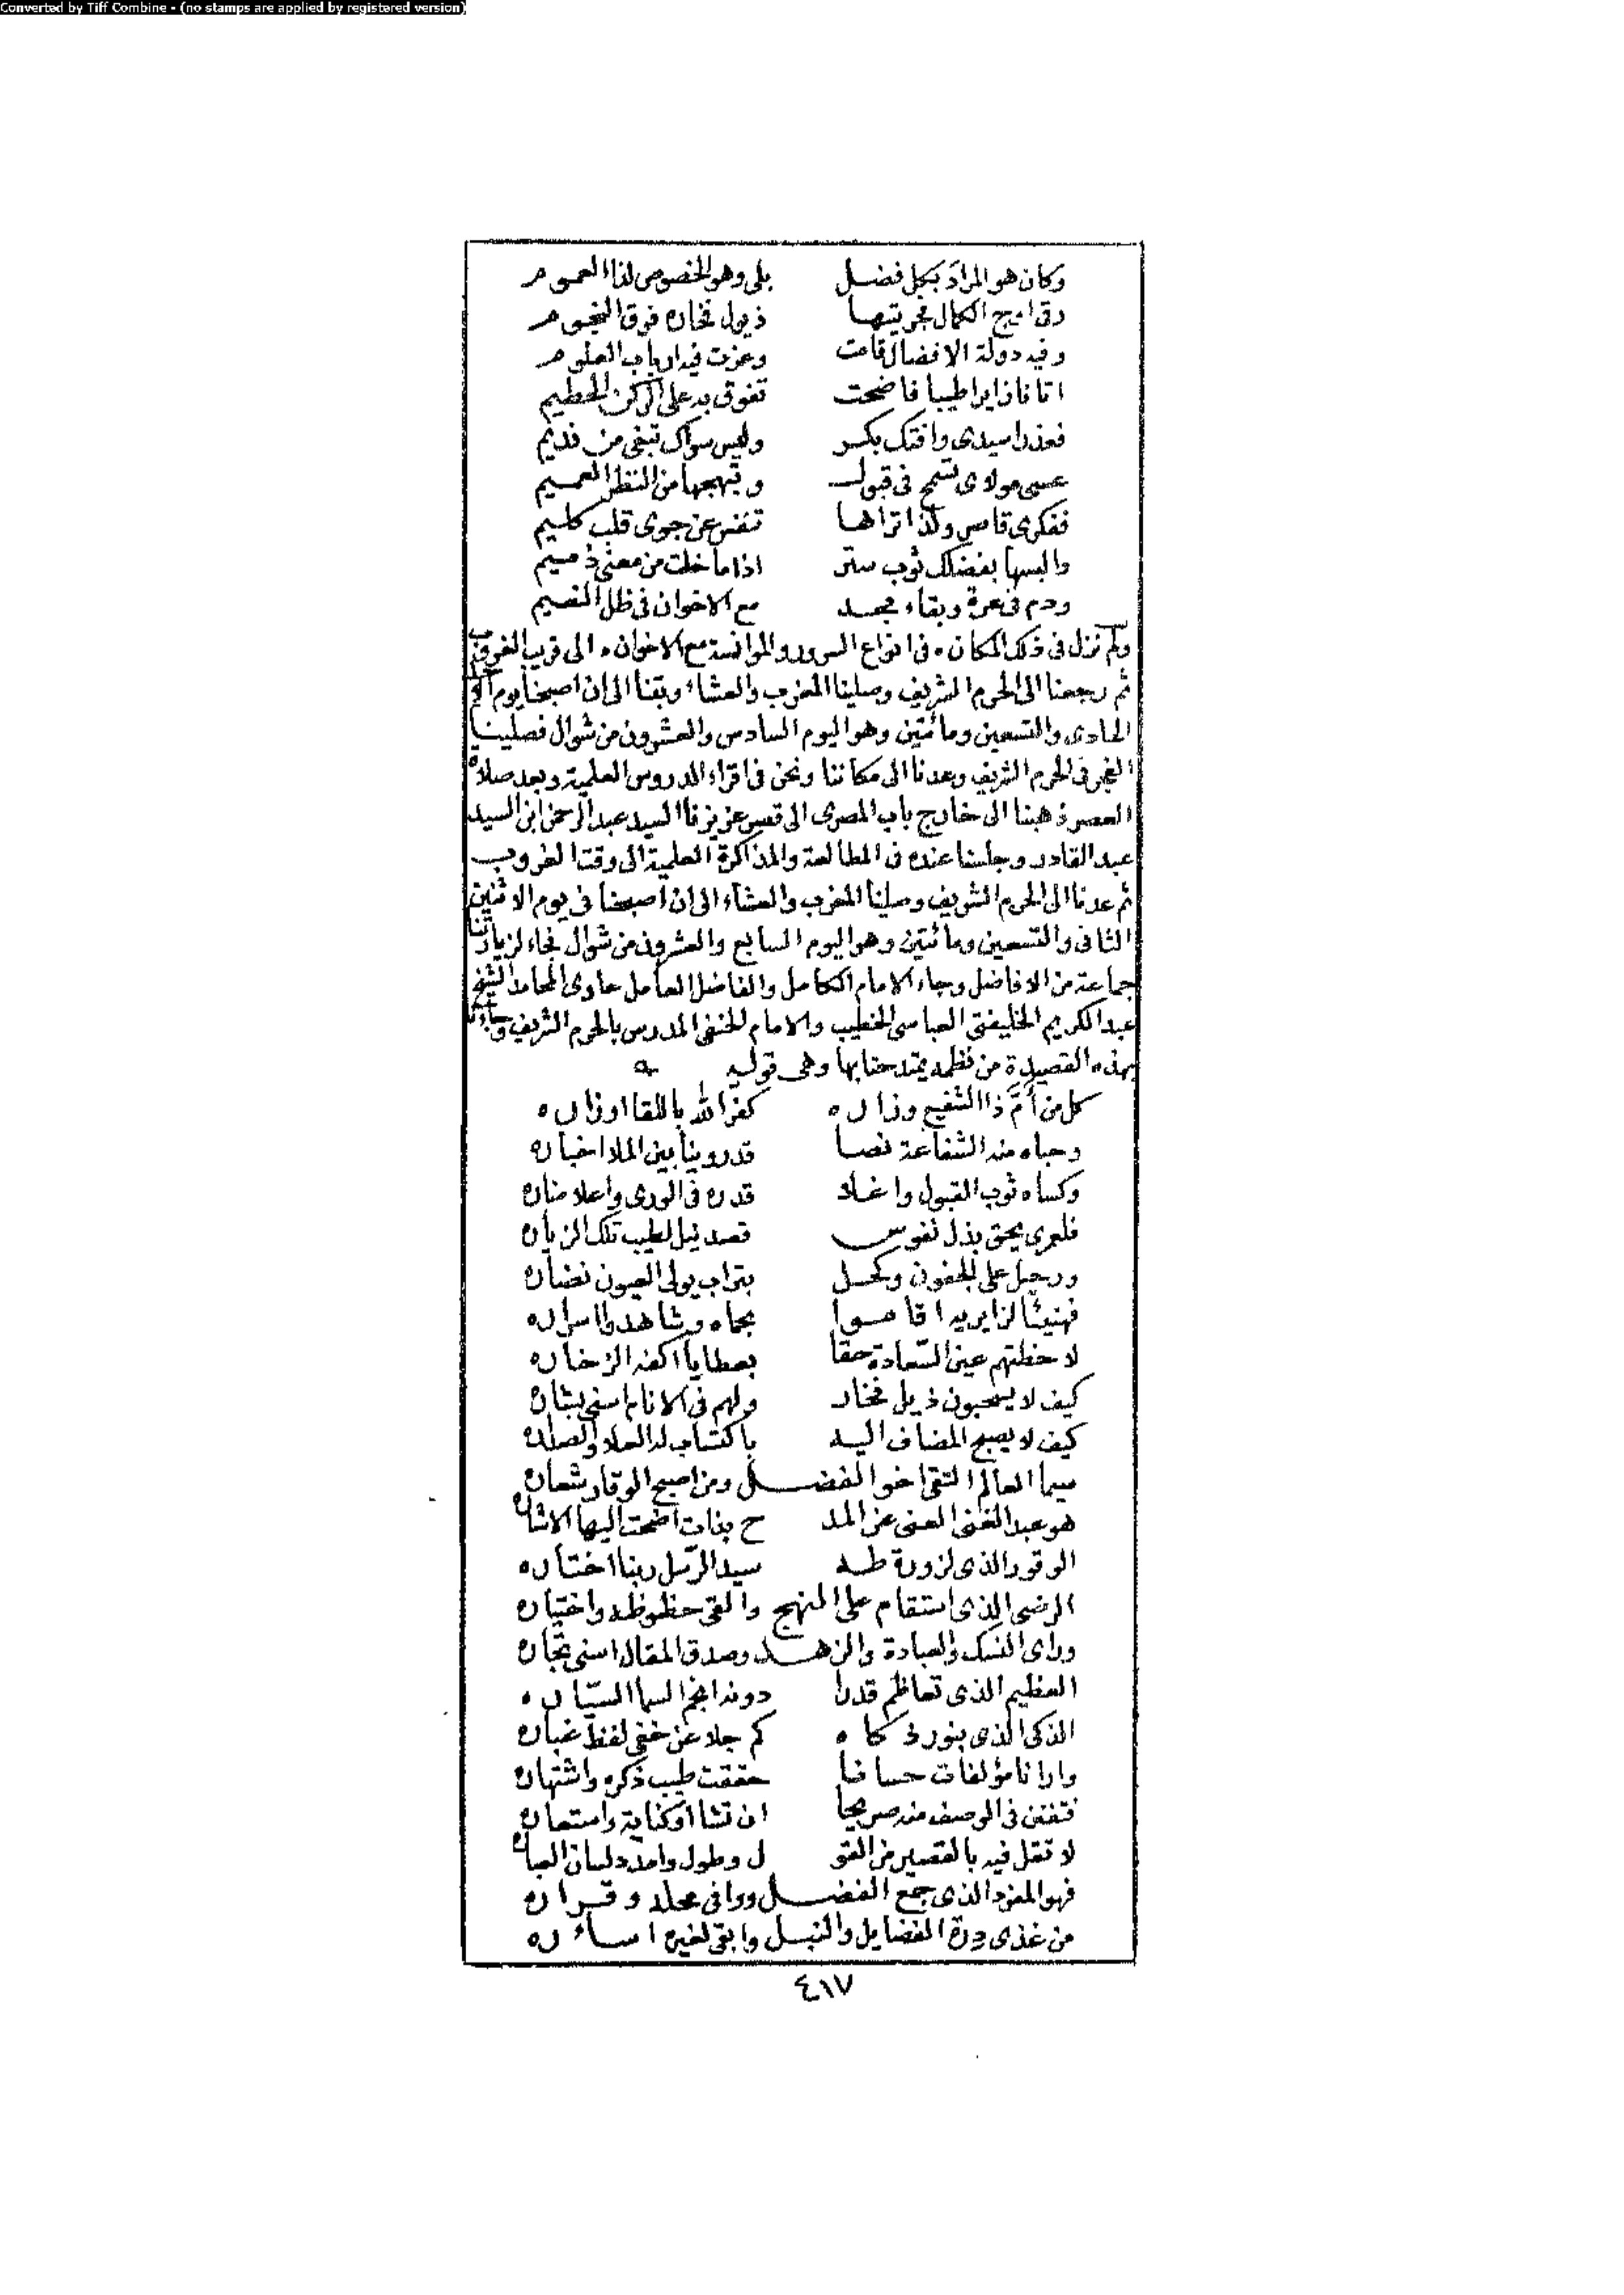 Converted by Tiff Combine - (no stamps are applied by registered version)
وكان هو المراد بكل فضل بلى وهو الخصوص لذا العموم
رقى اوج الكمال فجر تيها ذيول فخاره فوق النجوم
وفيه دولة الافضال قامت وعزت فيه ارباب العلوم
اتانا زايرا طيبا فاضحت تفوق به على الركن الحطيم
فعذرا سيدى وافتك بكر وليس سواك تبغى من نديم
عسى مولاى تسمح فى قبول وتبهجها من النظر العميم
ففكرى قاصر ولذا تراها تنفس عن جوى قلب كليم
والبسها بفضلك ثوب ستر اذا ما خلت من معنى ذميم
ودم فى عزة وبقاء مجد مع الاخوان فى ظل النعيم
ولم نزل فى ذلك المكان ، فى انواع السرور والموانسة مع الاخوان ، الى قريب الغروب
ثم رجعنا الى الحرم الشريف وصلينا المغرب والعشاء وبتنا الى ان اصبحنا يوم
الحادى والتسعين ومائتين وهو اليوم السادس والعشرون من شوال فصلينا
الفجر فى الحرم الشريف وعدنا الى مكاننا ونحن فى اقراء الدروس العلمية وبعد صلاة
العصر ذهبنا الى خارج باب المصرى الى قصر عزيزنا السيد عبد الرحمن ابن السيد
عبد القادر وجلسنا عنده فى المطالعة والمذاكرة العلمية الى وقت الغروب
ثم عدنا الى الحرم الشريف وصلينا المغرب والعشاء الى ان اصبحنا فى يوم الاثنين
الثانى والتسعين ومائتين وهو اليوم السابع والعشرون من شوال فجاء لزيارتنا
جماعة من الافاضل وجاء الامام الكامل والفاضل العامل حاوى المحامد الشيخ
عبد الكريم الخليفتى العباسى الخطيب والامام الحنفى المدرس بالحرم الشريف وجاءنا
بهذه القصيدة من نظمه يمتدحنا بها وهى قوله
كل من أمَّ ذا الشفيع وزاره كفر الله باللقا اوزاره
وحباه منه الشفاعة نصا قد روينا بين الملا اخباره
وكساه ثوب القبول واغلا قدره فى الورى واعلا مناره
فلعمرى يحق بذل نفوس قصد نيل لطيب تلك الزياره
ورحيل على الجفون وكحل بتراب يولى العيون نضاره
فهنيئا لزايريه اقاموا بحماه وشاهدوا اسراره
لاحظتهم عين السعادة حقا بعطايا اكفه الزخاره
كيف لا يسحبون ذيل فخار ولهم فى الانام اسنى بشاره
كيف لا يصبح المضاف اليه باكتساب له العلا والصداره
سيما العالم التقى اخو الفضل ومن اصبح الوقار شعاره
هو عبد الغنى الغنى عن المد ح بذات اضحت اليها الاشاره
الوقور الذى لزورة طه سيد الرسل ربنا اختاره
الرضى الذى استقام على المنهج والقى حظوظه واختياره
وراى النسك والعبادة والزهد وصدق المقال اسنى تجاره
العظيم الذى تعاظم قدرا دونه انجم السما السياره
الذكى الذى بنور ذكاه كم جلا عن خفى لفظ غباره
وارانا مؤلفات حسانا حققت طيب ذكره واشتهاره
فتفنن فى الوصف منه صريحا ان تشا او كناية واستعاره
لا تقل فيه بالقصير من القو ل وطول وامدد لسان العباره
فهو المفرد الذى جمع الفضل ووافى محله وقراره
من غذى درة الفضايل والنبل وابقى لغيره اساره
٤١٧